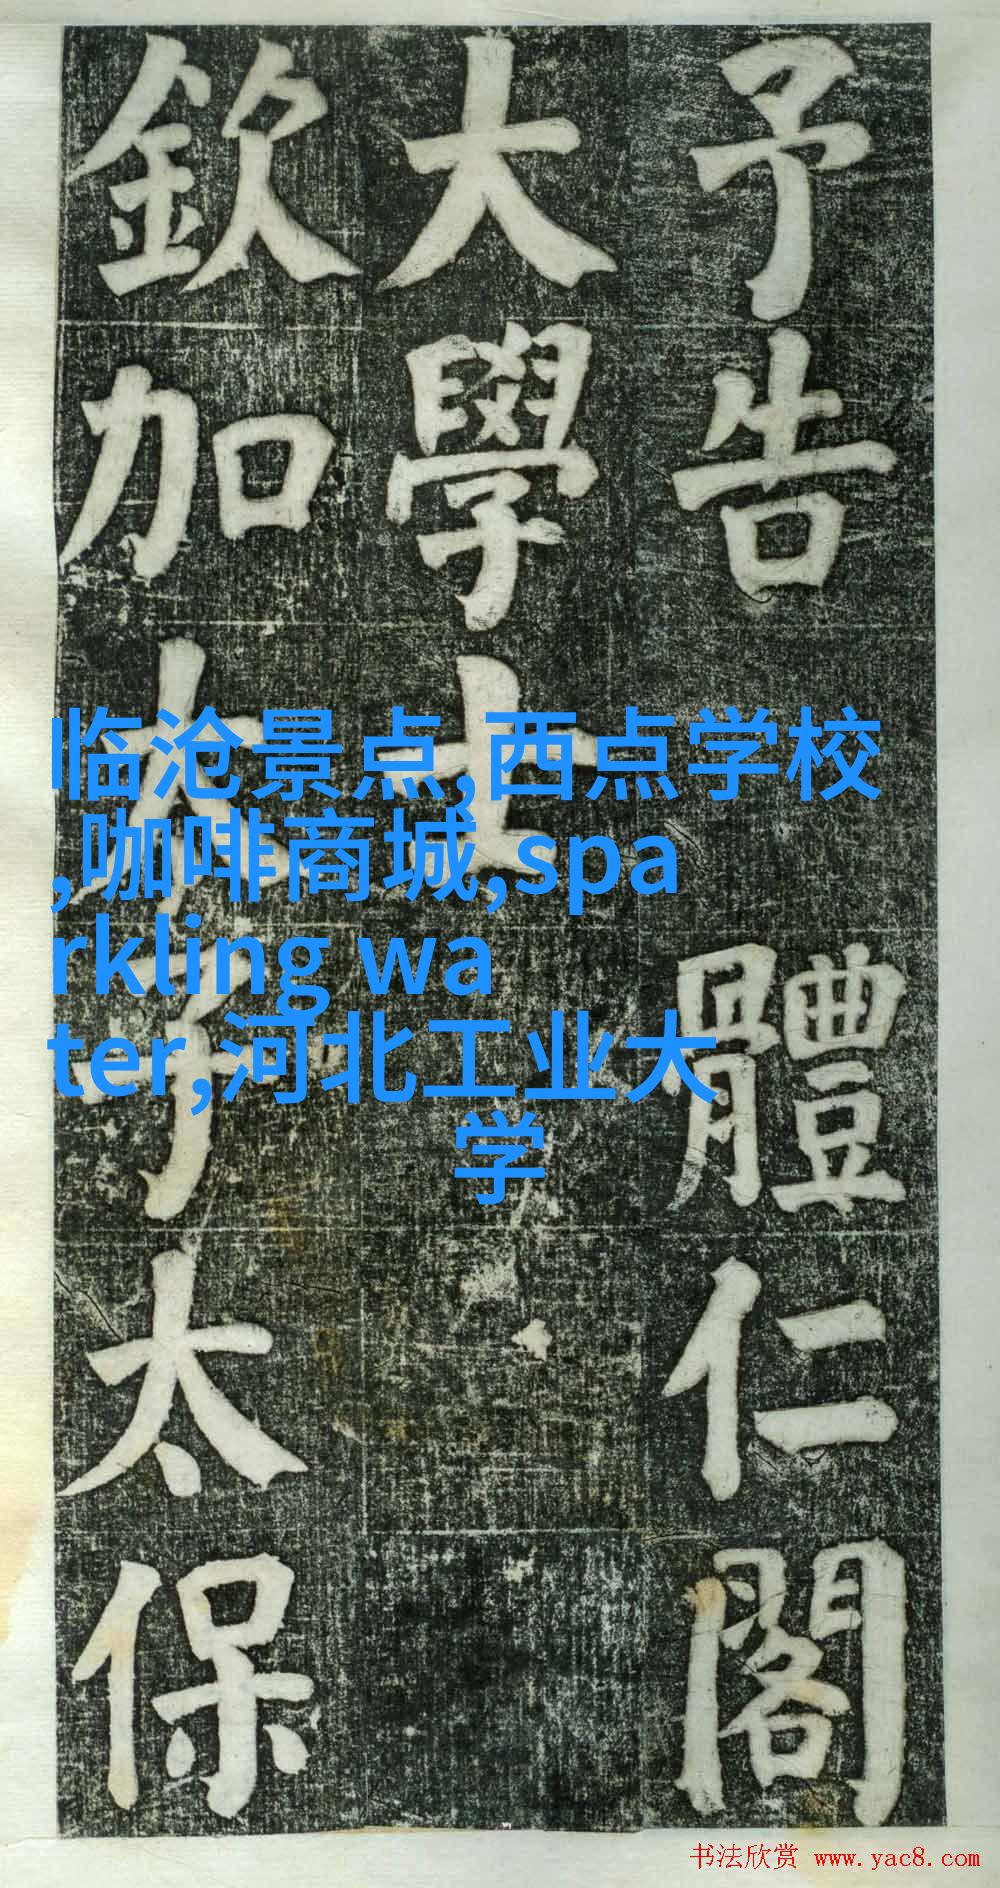 予告體仁閣
大學士
欽加太子太保
临沧景点,西点学校
,咖啡商城,spa
rkling wa
ter,河北工业大
学
书法欣赏 www.yac8.com